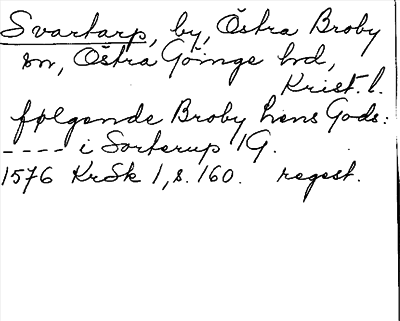 Svartarp, by, Östra Broby
sn, Östra Göinge hd,
Krist. l.
følgende Broby Lens Gods:
---- i Sorterup 1 G.
1576 KrSk 1, s. 160. regest.